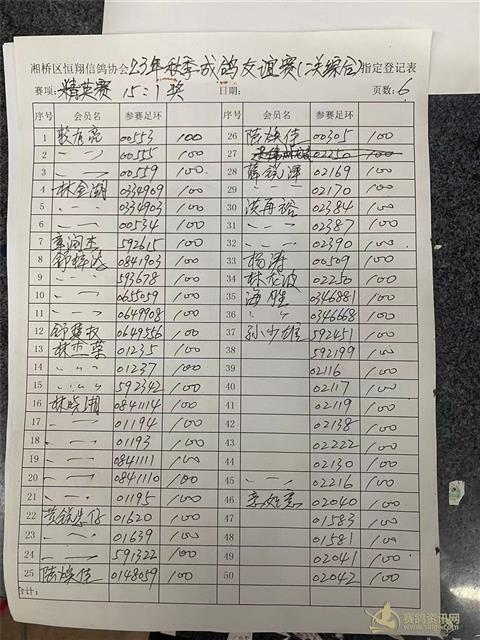 湘桥区恒翔信鸽协会23年秋季成鸽友谊赛(二关综合)指定登记表
赛项:精英赛 15:1奖 日期: 页数:6
序号 会员名 参赛足环 序号 会员名 参赛足环
1 00553 100 26 陈焕佳 00305 100
2 〃 00555 100 27 02250 100
3 〃 00559 100 28 02169 100
4 林金湖 0334909 100 29 〃 02170 100
5 〃 0334903 100 30 洪再裕 02384 100
6 〃 00534 100 31 〃 02387 100
7 592615 100 32 〃 02390 100
8 0841903 100 33 杨涛 06509 100
9 〃 593678 100 34 林龙波 02250 100
10 〃 065059 100 35 海胜 0346881 100
11 〃 0649908 100 36 〃 0346668 100
12 0649556 100 37 孙少雄 592451 100
13 林杰荣 01235 100 38 592199 100
14 〃 01237 100 39 02116 100
15 〃 592342 100 40 02117 100
16 林晓湘 0841114 100 41 02119 100
17 〃 01194 100 42 02138 100
18 〃 01193 100 43 02222 100
19 〃 0841111 100 44 02130 100
20 〃 0841110 100 45 〃 02216 100
21 〃 01195 100 46 02040 100
22 01620 100 47 01583 100
23 〃 01639 100 48 01581 100
24 〃 591322 100 49 02041 100
25 陈焕佳 0148059 100 50 02042 100
合计:
赛鸽资讯网